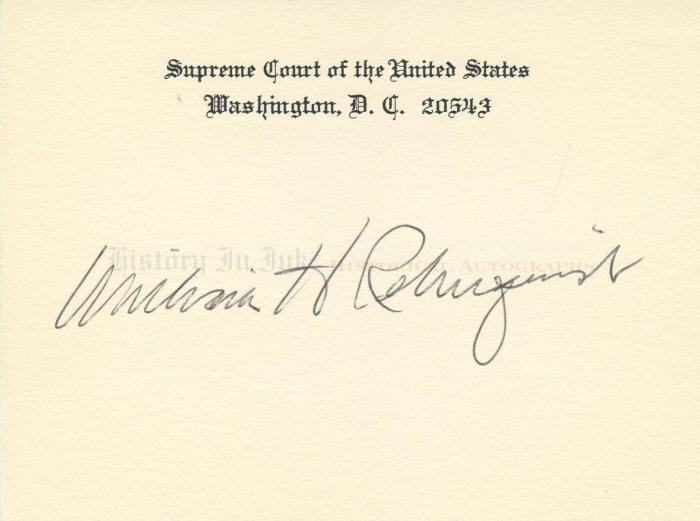 Supreme Court of the United States
Washington, D. C. 20543
History In Ink HISTORICAL AUTOGRAPHS
William H Rehnquist